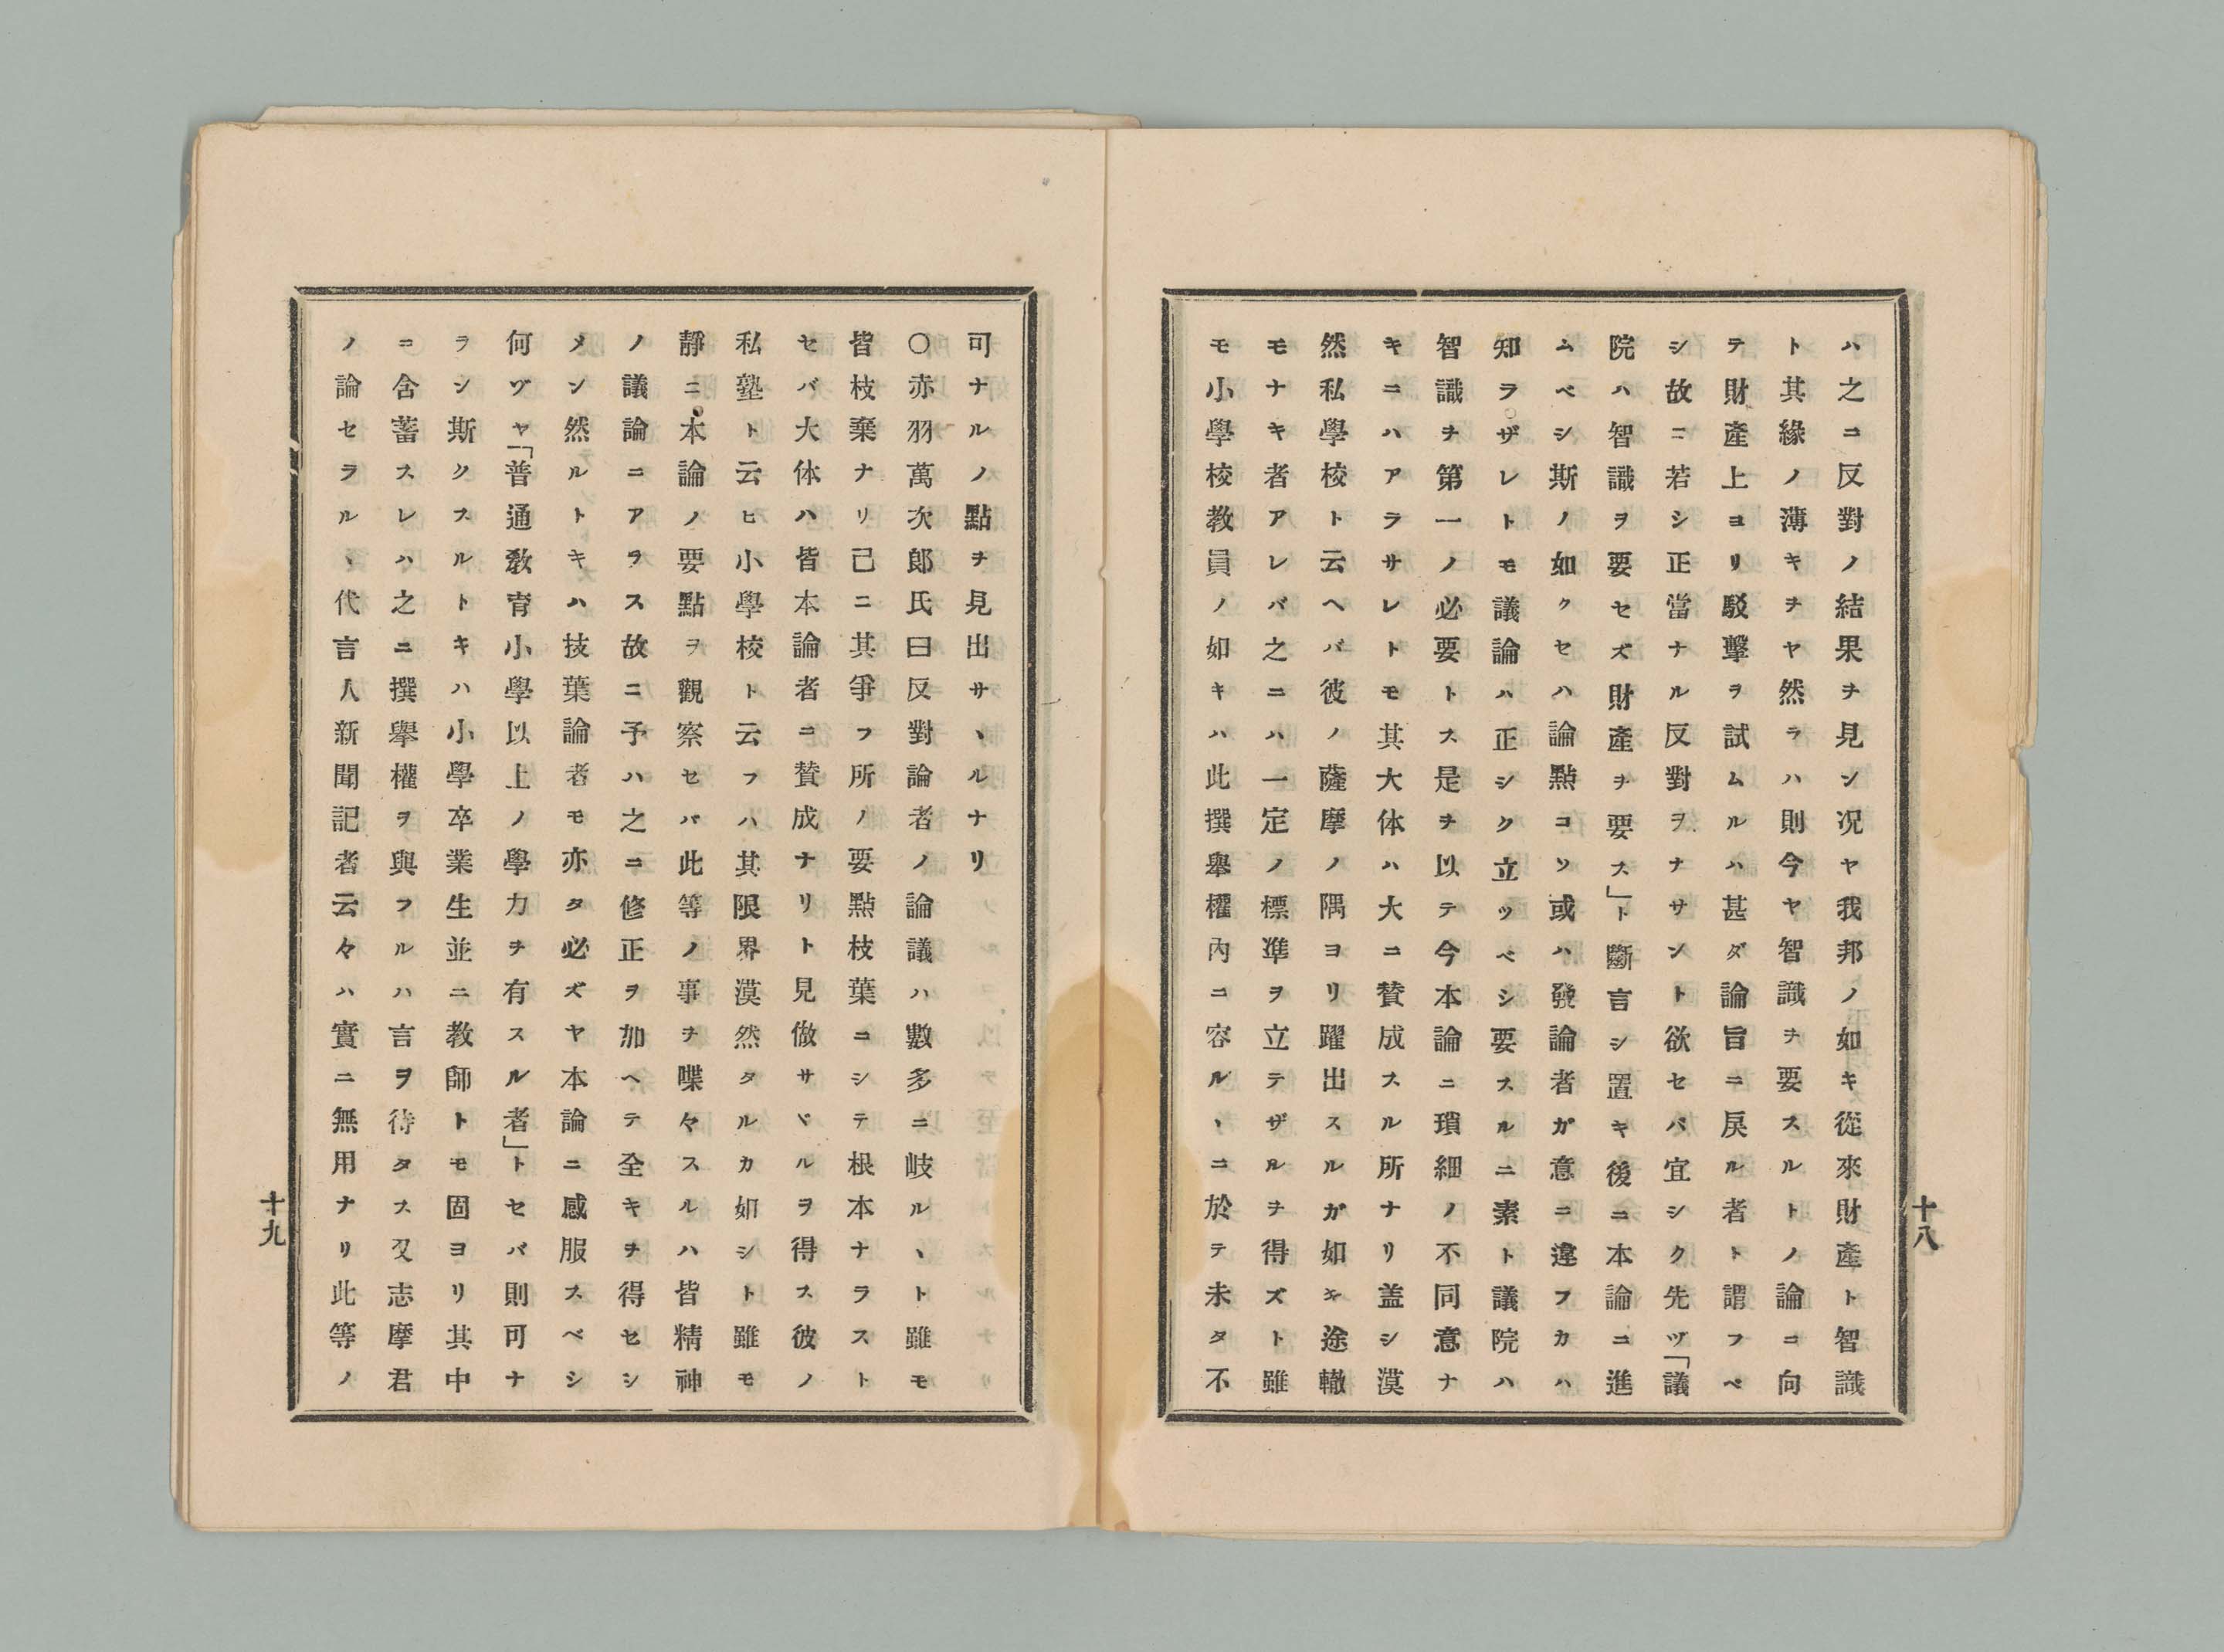 ハ之ニ反對ノ結果ヲ見ン况ヤ我邦ノ如キ從來財產ト智識
ト其緣ノ薄キヲヤ然ラハ則今ヤ智識ヲ要スルトノ論ニ向
テ財產上ヨリ駁擊ヲ試ムルハ甚ダ論旨ニ戾ル者ト謂フベ
シ故ニ若シ正當ナル反對ヲナサント欲セバ宜シク先ヅ「議
院ハ智識ヲ要セズ財產ヲ要ス」ト斷言シ置キ後ニ本論ニ進
ムベシ斯ノ如クセハ論點コソ或ハ發論者ガ意ニ違フカハ
知ラザレトモ議論ハ正シク立ツベシ要スルニ素ト議院ハ
智識ヲ第一ノ必要トス是ヲ以テ今本論ニ瑣細ノ不同意ナ
キニハアラサレトモ其大体ハ大ニ賛成スル所ナリ蓋シ漠
然私學校ト云ヘバ彼ノ薩摩ノ隅ヨリ躍出スルガ如キ途轍
モナキ者アレバ之ニハ一定ノ標準ヲ立テザルヲ得ズト雖
モ小學校教員ノ如キハ此撰擧權內ニ容ルヽニ於テ未タ不
十八
可ナルノ點ヲ見出サヽルナリ
○赤羽萬次郎氏曰反對論者ノ論議ハ數多ニ岐ルヽト雖モ
皆枝棄ナリ己ニ其爭フ所ノ要點枝葉ニシテ根本ナラスト
セバ大体ハ皆本論者ニ賛成ナリト見做サヾルヲ得ス彼ノ
私塾ト云ヒ小學校ト云フハ其限界漠然タルカ如シト雖モ
靜ニ本論ノ要點ヲ觀察セバ此等ノ事ヲ喋々スルハ皆精神
ノ議論ニアラス故ニ予ハ之ニ修正ヲ加ヘテ全キヲ得セシ
メン然ルトキハ技葉論者モ亦タ必ズヤ本論ニ感服スベシ
何ヅヤ「普通敎育小學以上ノ學力ヲ有スル者」トセバ則可ナ
ラン斯クスルトキハ小學卒業生並ニ教師トモ固ヨリ其中
ニ含蓄スレハ之ニ撰擧權ヲ與フルハ言ヲ待タス又志摩君
ノ論セラルヽ代言人新聞記者云々ハ實ニ無用ナリ此等ノ
十九